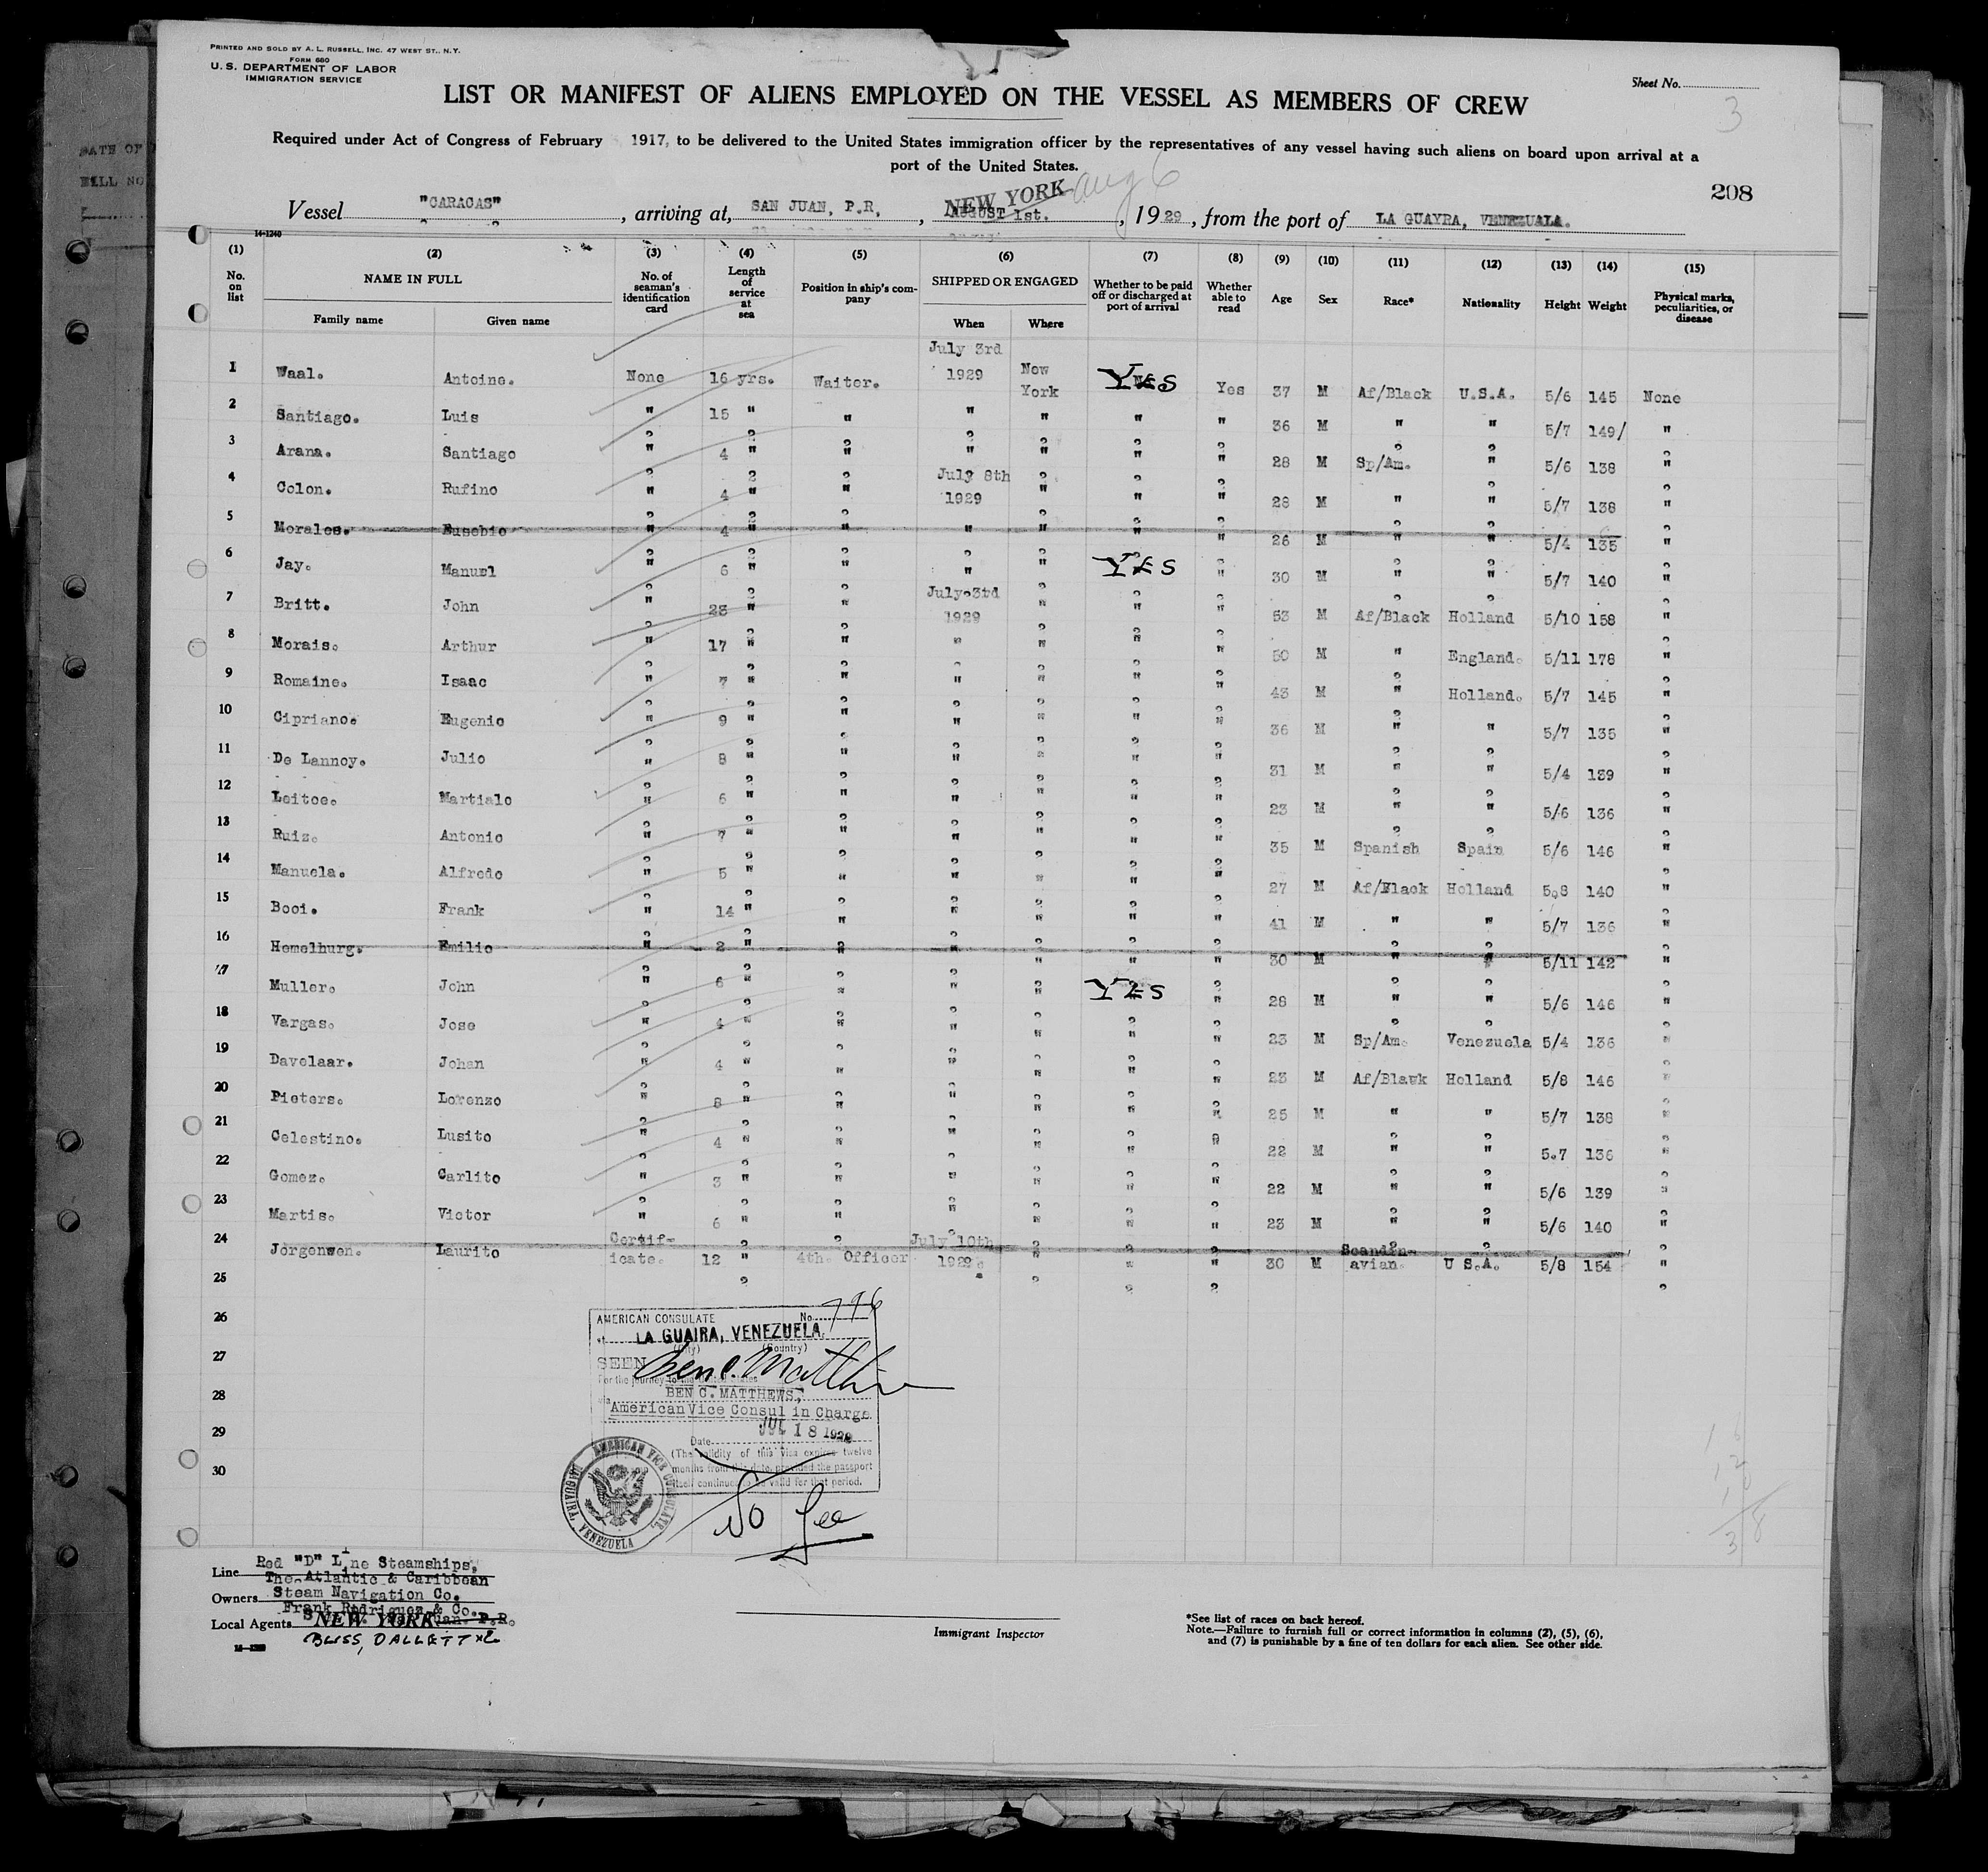 PRINTED AND SOLD BY A. L. RUSSELL, INC. 47 WEST ST., N.Y.
FORM 680
U. S. DEPARTMENT OF LABOR
IMMIGRATION SERVICE
Sheet No.
3
LIST OR MANIFEST OF ALIENS EMPLOYED ON THE VESSEL AS MEMBERS OF CREW
Required under Act of Congress of February 1917, to be delivered to the United States immigration officer by the representatives of any vessel having such aliens on board upon arrival at a
port of the United States.
208
NEW YORK Aug 6
Vessel "CARACAS", arriving at, SAN JUAN, P.R, , AUGUST 1st. , 1929, from the port of LA GUAYRA, VENEZUALA.
14-1240
(1) (2) (3) (4) (5) (6) (7) (8) (9) (10) (11) (12) (13) (14) (15)
No. on list NAME IN FULL Family name Given name No. of seaman's identification card Length of service at sea Position in ship's company SHIPPED OR ENGAGED When Where Whether to be paid off or discharged at port of arrival Whether able to read Age Sex Race* Nationality Height Weight Physical marks, peculiarities, or disease
1 Waal. Antoine. None 16 yrs. Waiter. July 3rd 1929 New York YES Yes 37 M Af/Black U.S.A. 5/6 145 None
2 Santiago. Luis " 15 " " " " " " 36 M " " 5/7 149/ "
3 Arana. Santiago " 4 " " " " " " 28 M Sp/Am. " 5/6 138 "
4 Colon. Rufino " 4 " " July 8th 1929 " " " 28 M " " 5/7 138 "
5 Morales. Eusebio " 4 " " " " " " 26 M " " 5/4 135 "
6 Jay. Manuel " 6 " " " " YES " 30 M " " 5/7 140 "
7 Britt. John " 23 " " July 3rd 1929 " " " 53 M Af/Black Holland 5/10 158 "
8 Morais. Arthur " 17 " " " " " " 50 M " England. 5/11 178 "
9 Romaine. Isaac " 7 " " " " " " 43 M " Holland. 5/7 145 "
10 Cipriano. Eugenio " 9 " " " " " " 36 M " " 5/7 135 "
11 De Lannoy. Julio " 8 " " " " " " 31 M " " 5/4 139 "
12 Leitoe. Martialo " 6 " " " " " " 23 M " " 5/6 136 "
13 Ruiz. Antonio " 7 " " " " " " 35 M Spanish Spain 5/6 146 "
14 Manuela. Alfredo " 5 " " " " " " 27 M Af/Black Holland 5.8 140 "
15 Booi. Frank " 14 " " " " " " 41 M " " 5/7 136 "
16 Hemelburg. Emilio " 2 " " " " " " 30 M " " 5/11 142 "
17 Muller. John " 6 " " " " YES " 28 M " " 5/6 146 "
18 Vargas. Jose " 4 " " " " " " 23 M Sp/Am. Venezuela 5/4 136 "
19 Davelaar. Johan " 4 " " " " " " 23 M Af/Black Holland 5/8 146 "
20 Pieters. Lorenzo " 8 " " " " " " 25 M " " 5/7 138 "
21 Celestino. Lusito " 4 " " " " " " 22 M " " 5.7 136 "
22 Gomez. Carlito " 3 " " " " " " 22 M " " 5/6 139 "
23 Martis. Victor " 6 " " " " " " 23 M " " 5/6 140 "
24 Jorgensen. Laurito Certificate. 12 " 4th. Officer July 10th 1929. " " " 30 M Scandinavian. U S.A. 5/8 154 "
25
26
27
28
29
30
AMERICAN CONSULATE No. 796
at LA GUAIRA, VENEZUELA.
(City) (Country)
SEEN Ben C. Matthews
For the journey to the United States
via BEN C. MATTHEWS,
American Vice Consul in Charge
JUL 18 1929
Date
(The validity of this visa expires twelve
months from this date, provided the passport
itself continues to be valid for that period.
AMERICAN VICE CONSULATE, LA GUAIRA, VENEZUELA
No fee
38
Line Red "D" Line Steamships,
The Atlantic & Caribbean
Owners Steam Navigation Co.
Frank Rodriguez & Co.
Local Agents NEW YORK San Juan. P.R.
BLISS, DALLETT & Co
Immigrant Inspector
*See list of races on back hereof.
Note.—Failure to furnish full or correct information in columns (2), (5), (6),
and (7) is punishable by a fine of ten dollars for each alien. See other side.
DATE OF
BILL NO